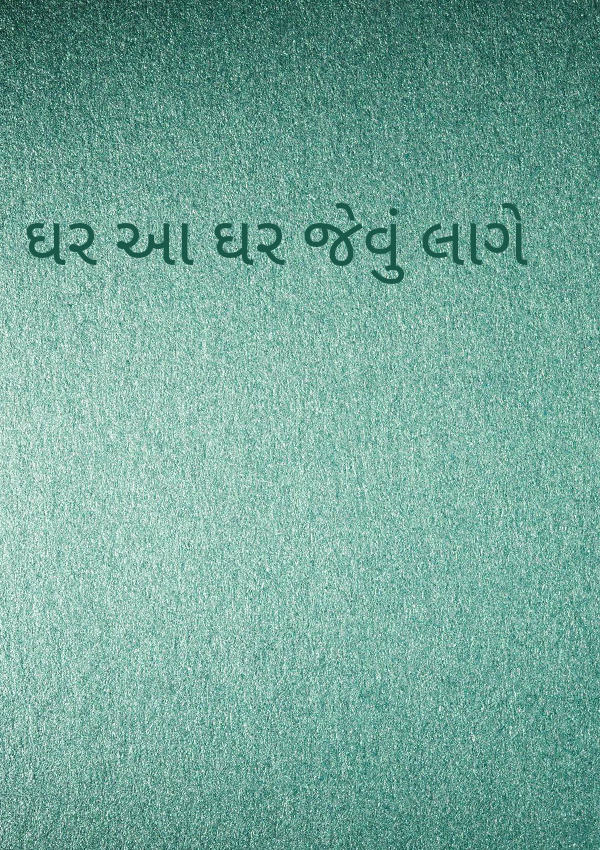 ઘર આ ઘર જેવું લાગે